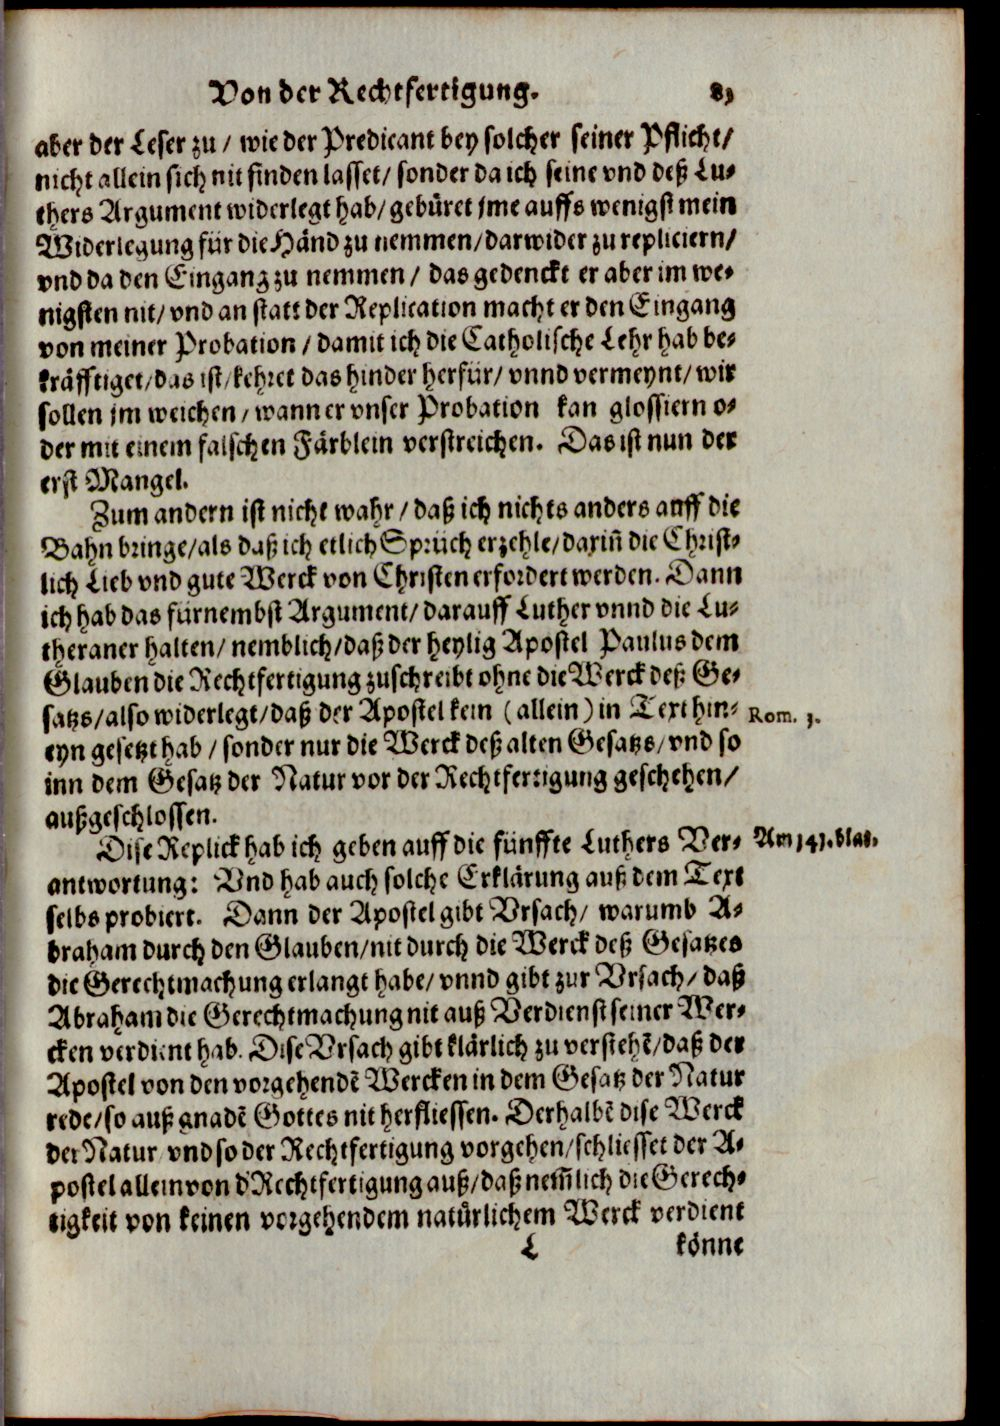 Von der Rechtfertigung. 81
aber der Leser zu / wie der Predicant bey solcher seiner Pflicht/
nicht allein sich nit finden lasset/ sonder da ich seine vnd deß Lu-
thers Argument widerlegt hab/ gebüret jme auffs wenigst mein
Widerlegung für die Händ zu nemmen/ darwider zu repliciern/
vnd da den Eingang zu nemmen / das gedenckt er aber im we-
nigsten nit/ vnd an statt der Replication macht er den Eingang
von meiner Probation / damit ich die Catholische Lehr hab be-
kräfftiget/ das ist/ kehret das hinder herfür/ vnnd vermeynt/ wir
sollen jm weichen / wann er vnser Probation kan glossiern o-
der mit einem falschen Färblein verstreichen. Das ist nun der
erst Mangel.
Zum andern ist nicht wahr / daß ich nichts anders auff die
Bahn bringe/ als daß ich etlich Sprüch erzehle/ darin̄ die Christ-
lich Lieb vnd gute Werck von Christen erfordert werden. Dann
ich hab das fürnembst Argument/ darauff Luther vnnd die Lu-
theraner halten/ nemblich/ daß der heylig Apostel Paulus dem
Glauben die Rechtfertigung zuschreibt ohne die Werck deß Ge-
satzs/ also widerlegt/ daß der Apostel kein (allein) in Text hin-
Rom. 3.
eyn gesetzt hab / sonder nur die Werck deß alten Gesatzs/ vnd so
inn dem Gesatz der Natur vor der Rechtfertigung geschehen/
außgeschlossen.
Dise Replick hab ich geben auff die fünffte Luthers Ver-
Am 141. blat.
antwortung: Vnd hab auch solche Erklärung auß dem Text
selbs probiert. Dann der Apostel gibt Vrsach/ warumb A-
braham durch den Glauben/ nit durch die Werck deß Gesatzes
die Gerechtmachung erlangt habe/ vnnd gibt zur Vrsach/ daß
Abraham die Gerechtmachung nit auß Verdienst seiner Wer-
cken verdient hab. Dise Vrsach gibt klärlich zu verstehē/ daß der
Apostel von den vorgehendē Wercken in dem Gesatz der Natur
rede/ so auß gnadē Gottes nit herfliessen. Derhalbē dise Werck
der Natur vnd so der Rechtfertigung vorgehen/ schliesset der A-
postel allein von d' Rechtfertigung auß/ daß nem̄lich die Gerech-
tigkeit von keinen vorgehendem natürlichem Werck verdient
L könne